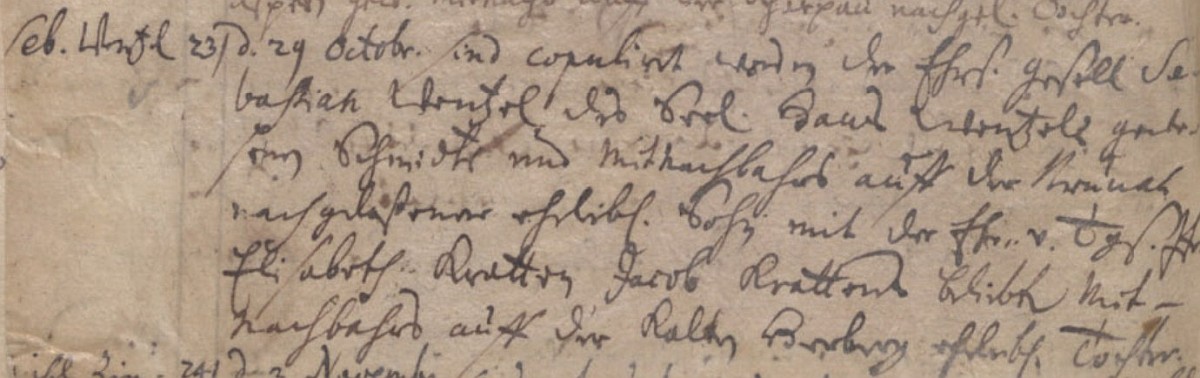 nachgel. Tochter.
Seb. Wentzel 23) d. 29 Octobr. sind copulirt worden der Ehrs. gesell Se-
bastian Wentzel des Seel. Hans Wentzels gewe-
senen Schmidts und Mitnachbahrs auff der
nachgelaßener ehelibl. Sohn mit der Ehr. v. Tgs. Jfr
Elisabeth Kratten Jacob Krattens Mit-
Nachbahrs auff der Kalten Herberg ehelibl. Tochter.
24) d. Novembr.